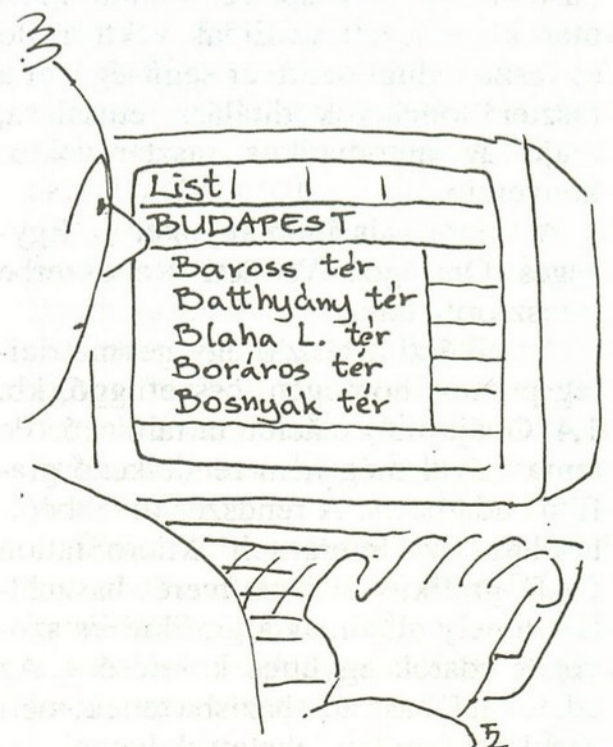 List
BUDAPEST
Baross tér
Batthyány tér
Blaha L. tér
Boráros tér
Bosnyák tér